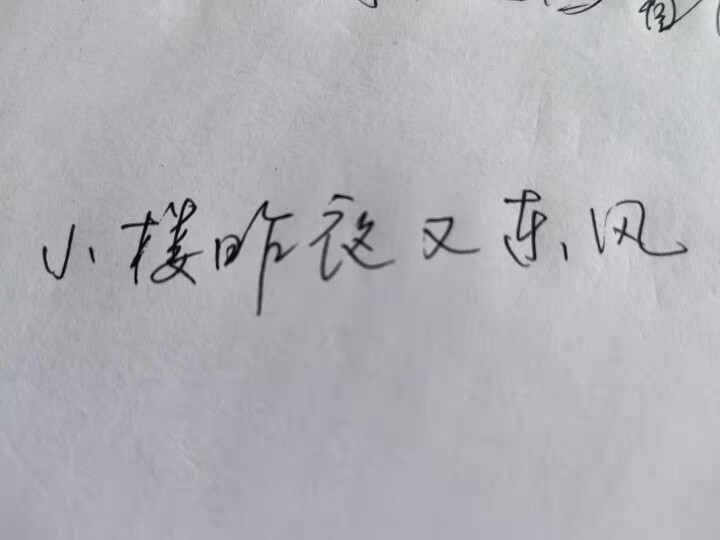 小楼昨夜又东风